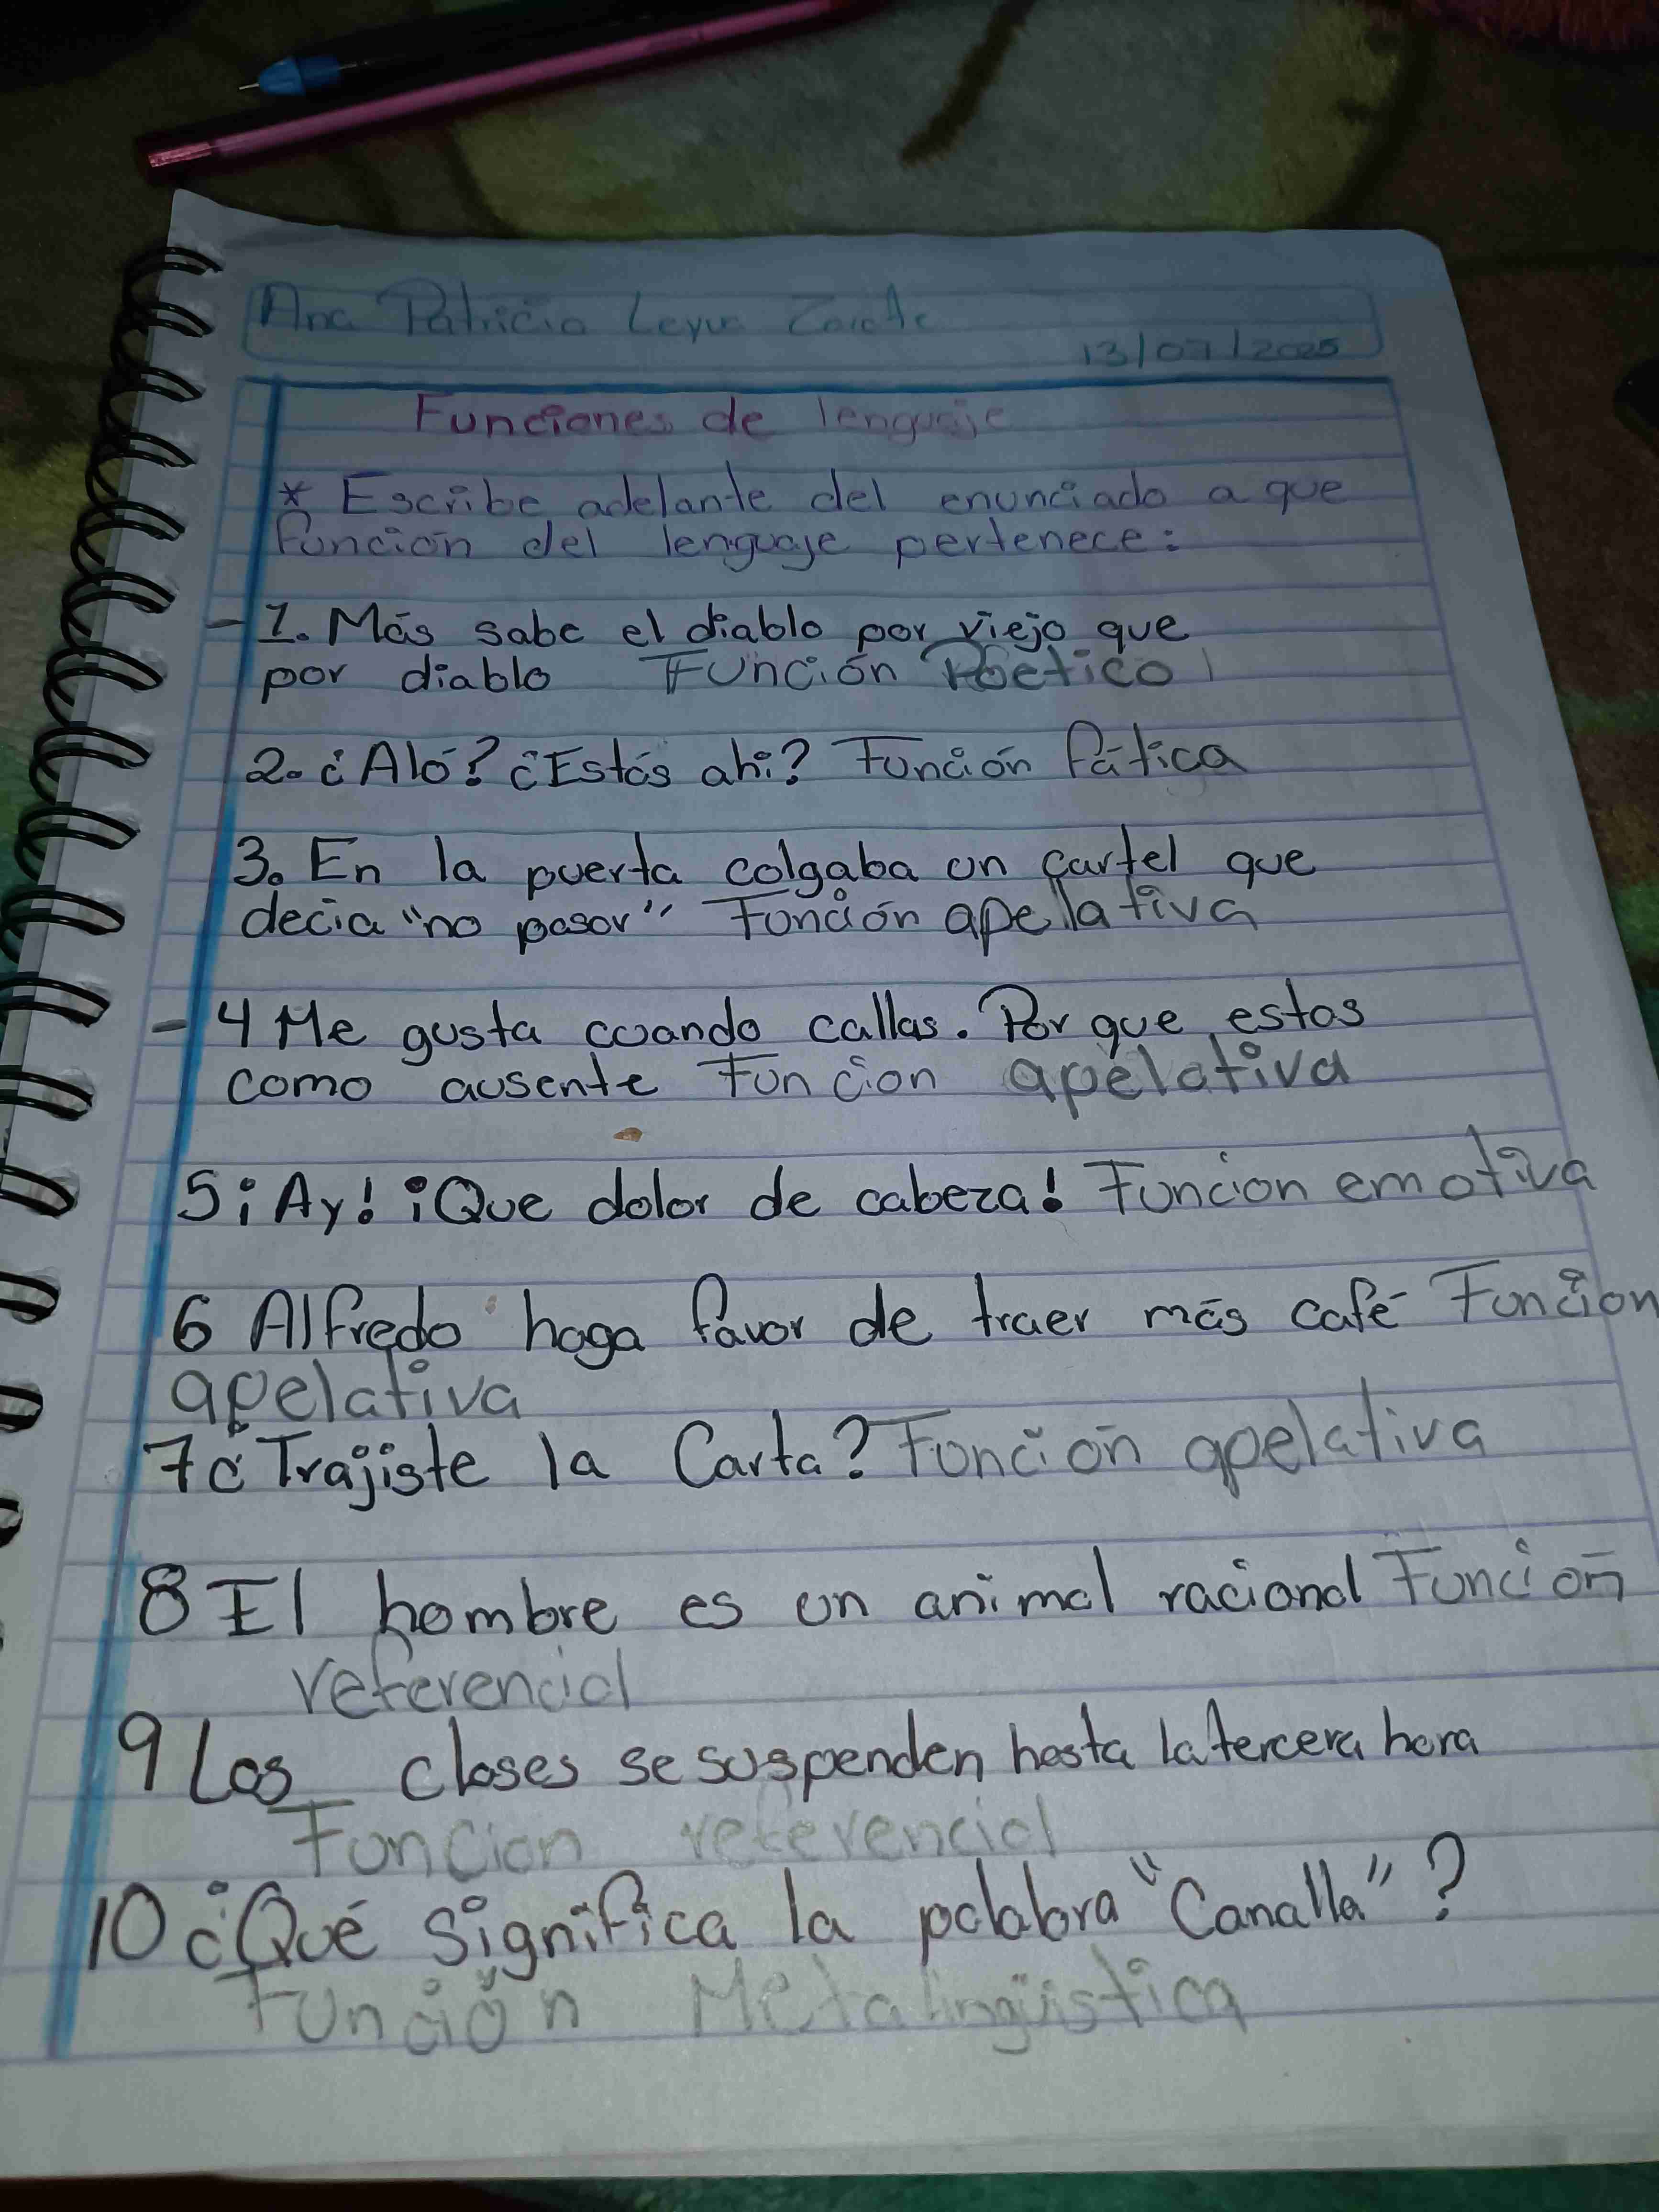 Ana Patricia Leyva Zarate
13/07/2025
Funciones de lenguaje
* Escribe adelante del enunciado a que
función del lenguaje pertenece:
- 1. Más sabe el diablo por viejo que
por diablo Función Poetico
2. ¿Aló? ¿Estás ahi? Función fática
3. En la puerta colgaba un cartel que
decia "no pasar" Función apelativa
- 4 Me gusta cuando callas. Por que estas
como ausente Funcion apelativa
5 ¡Ay! ¡Que dolor de cabeza! Funcion emotiva
6 Alfredo haga favor de traer más café Función
apelativa
7 ¿Trajiste la Carta? Función apelativa
8 El hombre es un animal racional Función
referencial
9 Las clases se suspenden hasta la tercera hora
Funcion referencial
10 ¿Qué significa la palabra "Canalla"?
Función Metalingüistica